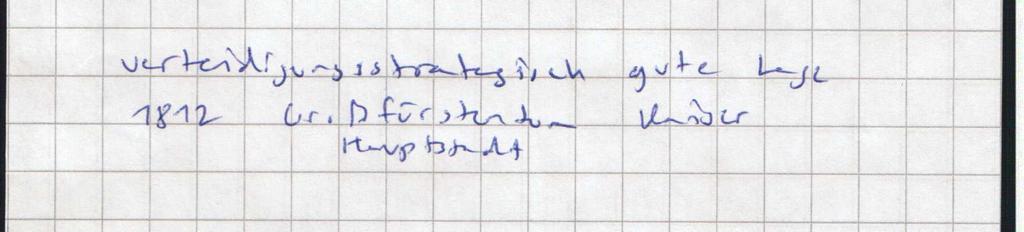 verteidigungsstrategisch gute Lage
1812 fürstentum Kaiser
Hauptstadt